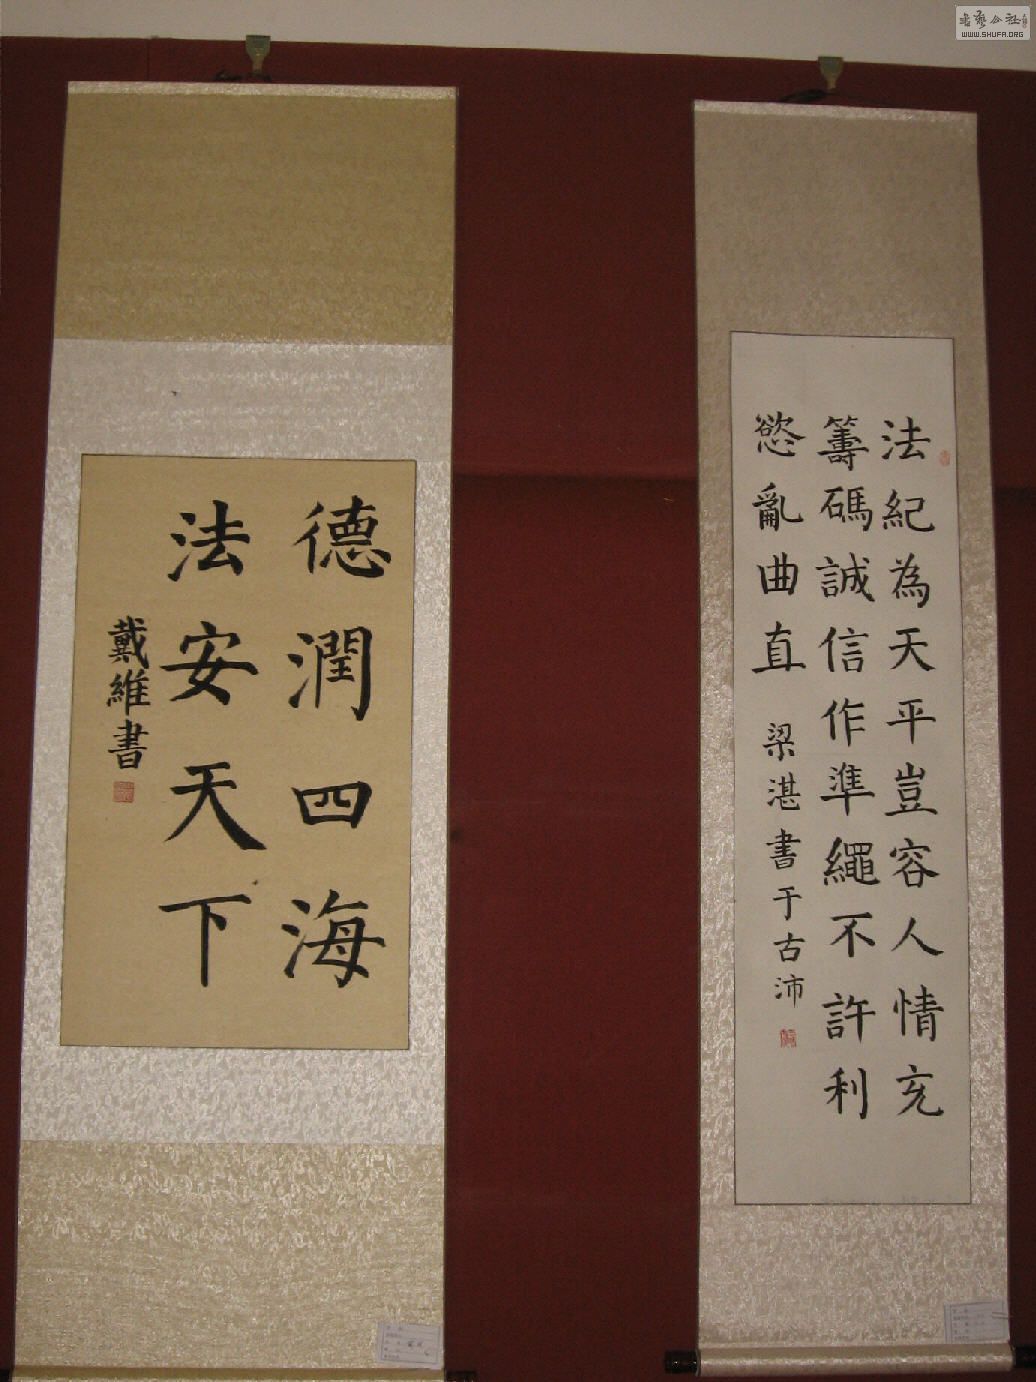 德潤四海
法安天下
戴維書
法紀為天平豈容人情充
籌碼誠信作準繩不許利
慾亂曲直
梁湛書于古沛
书艺公社
WWW.SHUFA.ORG